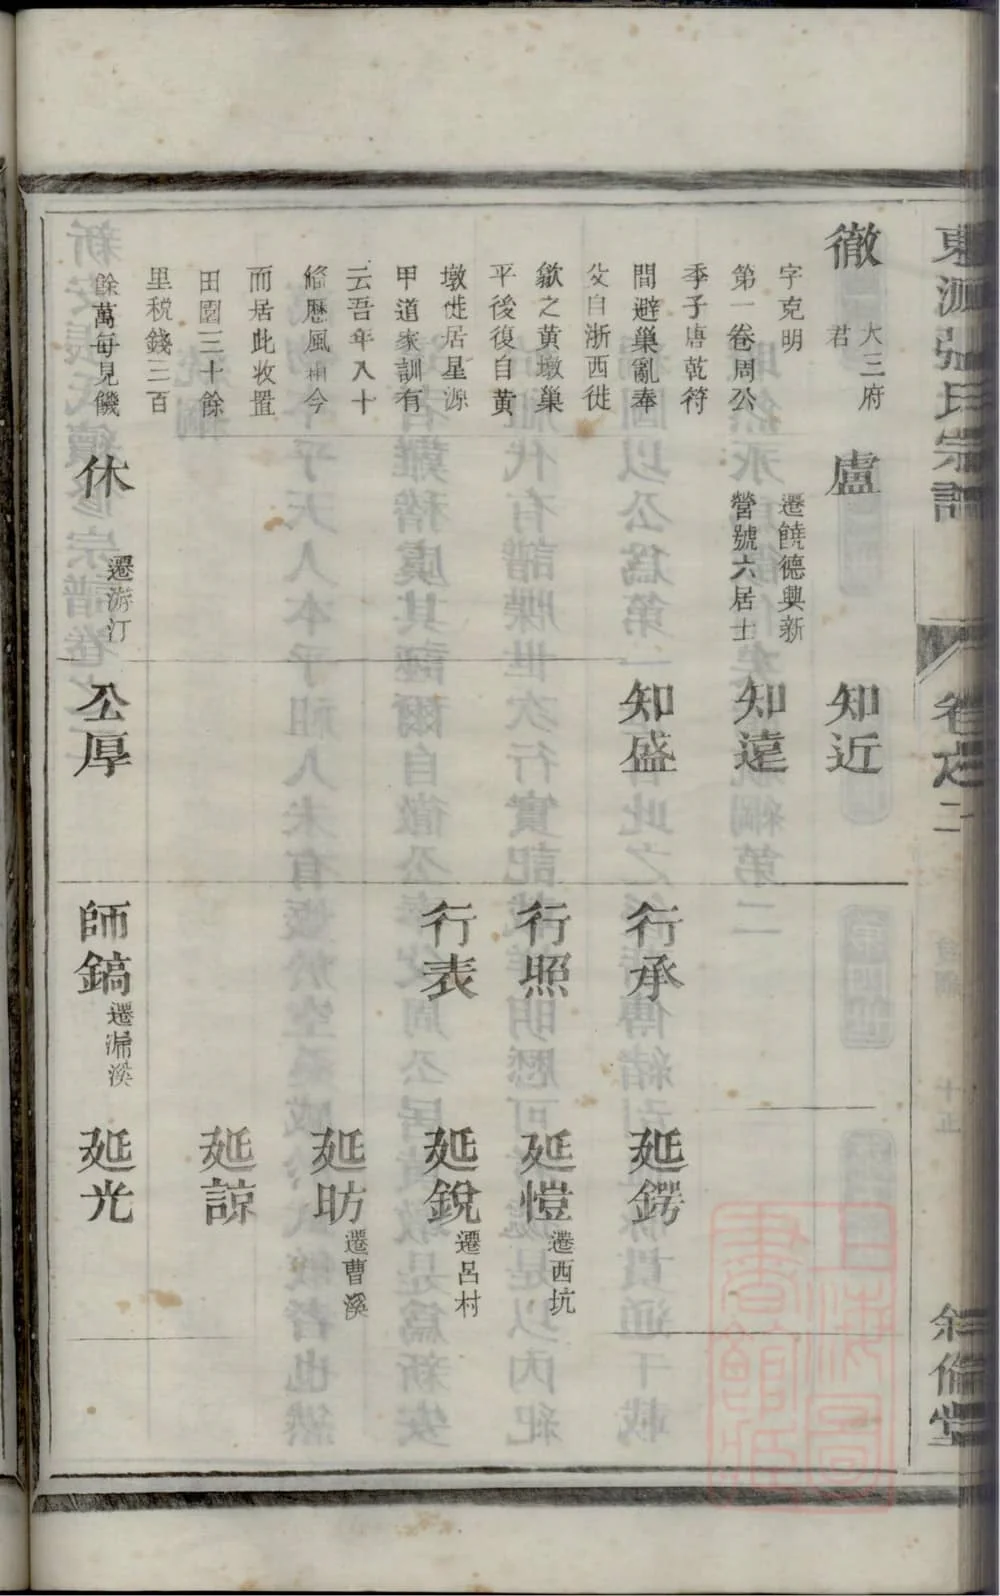 東源張氏宗譜
卷之二
敘倫堂
徹
大三府
君
字克明
第一卷周公
季子唐乾符
間避巢亂奉
父自浙西徙
歙之黃墩巢
平後復自黃
墩徙居星源
甲道家訓有
云吾年八十
備歷風霜今
而居此收置
田園三十餘
里稅錢三百
餘萬每見饑
盧
遷饒德興新
營號六居士
休
遷游汀
知近
知遠
知盛
公厚
行承
行照
行表
師鎬
遷漏溪
延鍔
延愷
遷西坑
延銳
遷呂村
延昉
遷曹溪
延諒
延光
上海圖
書館藏